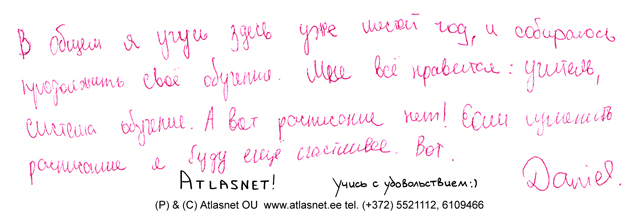 В общем я учусь здесь уже шестой год, и собираюсь
продолжить своё обучение. Мне всё нравится: учитель,
система обучение. А вот расписание нет! Если изменить
расписание я буду ещё счастливее. Вот.
Daniel.
ATLASNET! учись с удовольствием:)
(P) & (C) Atlasnet OU www.atlasnet.ee tel. (+372) 5521112, 6109466